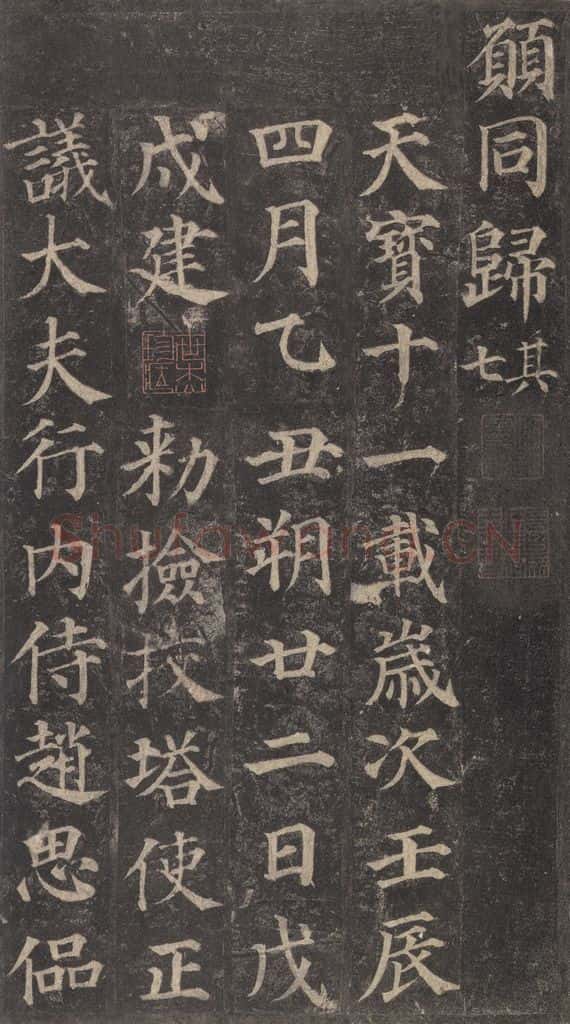 願同歸其七
天寶十一載歲次壬辰
四月乙丑朔廿二日戊
戌建 勑撿挍塔使正
議大夫行内侍趙思侃
Shufawang.CN